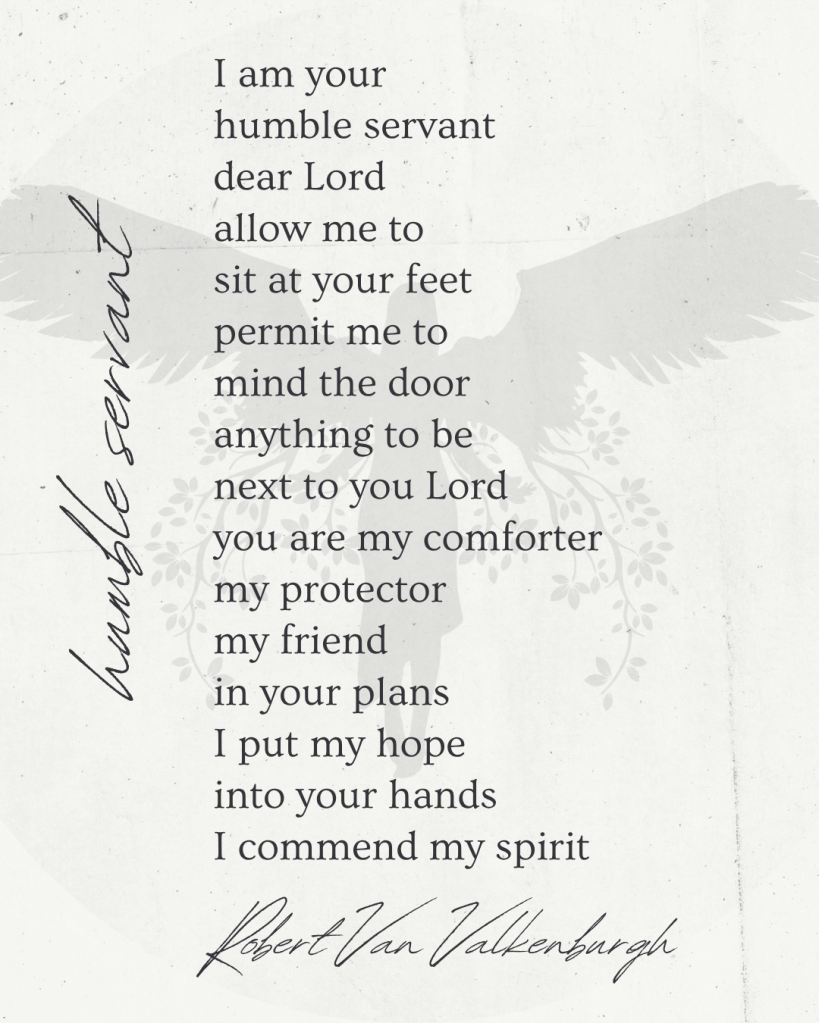 humble servant
I am your
humble servant
dear Lord
allow me to
sit at your feet
permit me to
mind the door
anything to be
next to you Lord
you are my comforter
my protector
my friend
in your plans
I put my hope
into your hands
I commend my spirit
Robert Van Valkenburgh